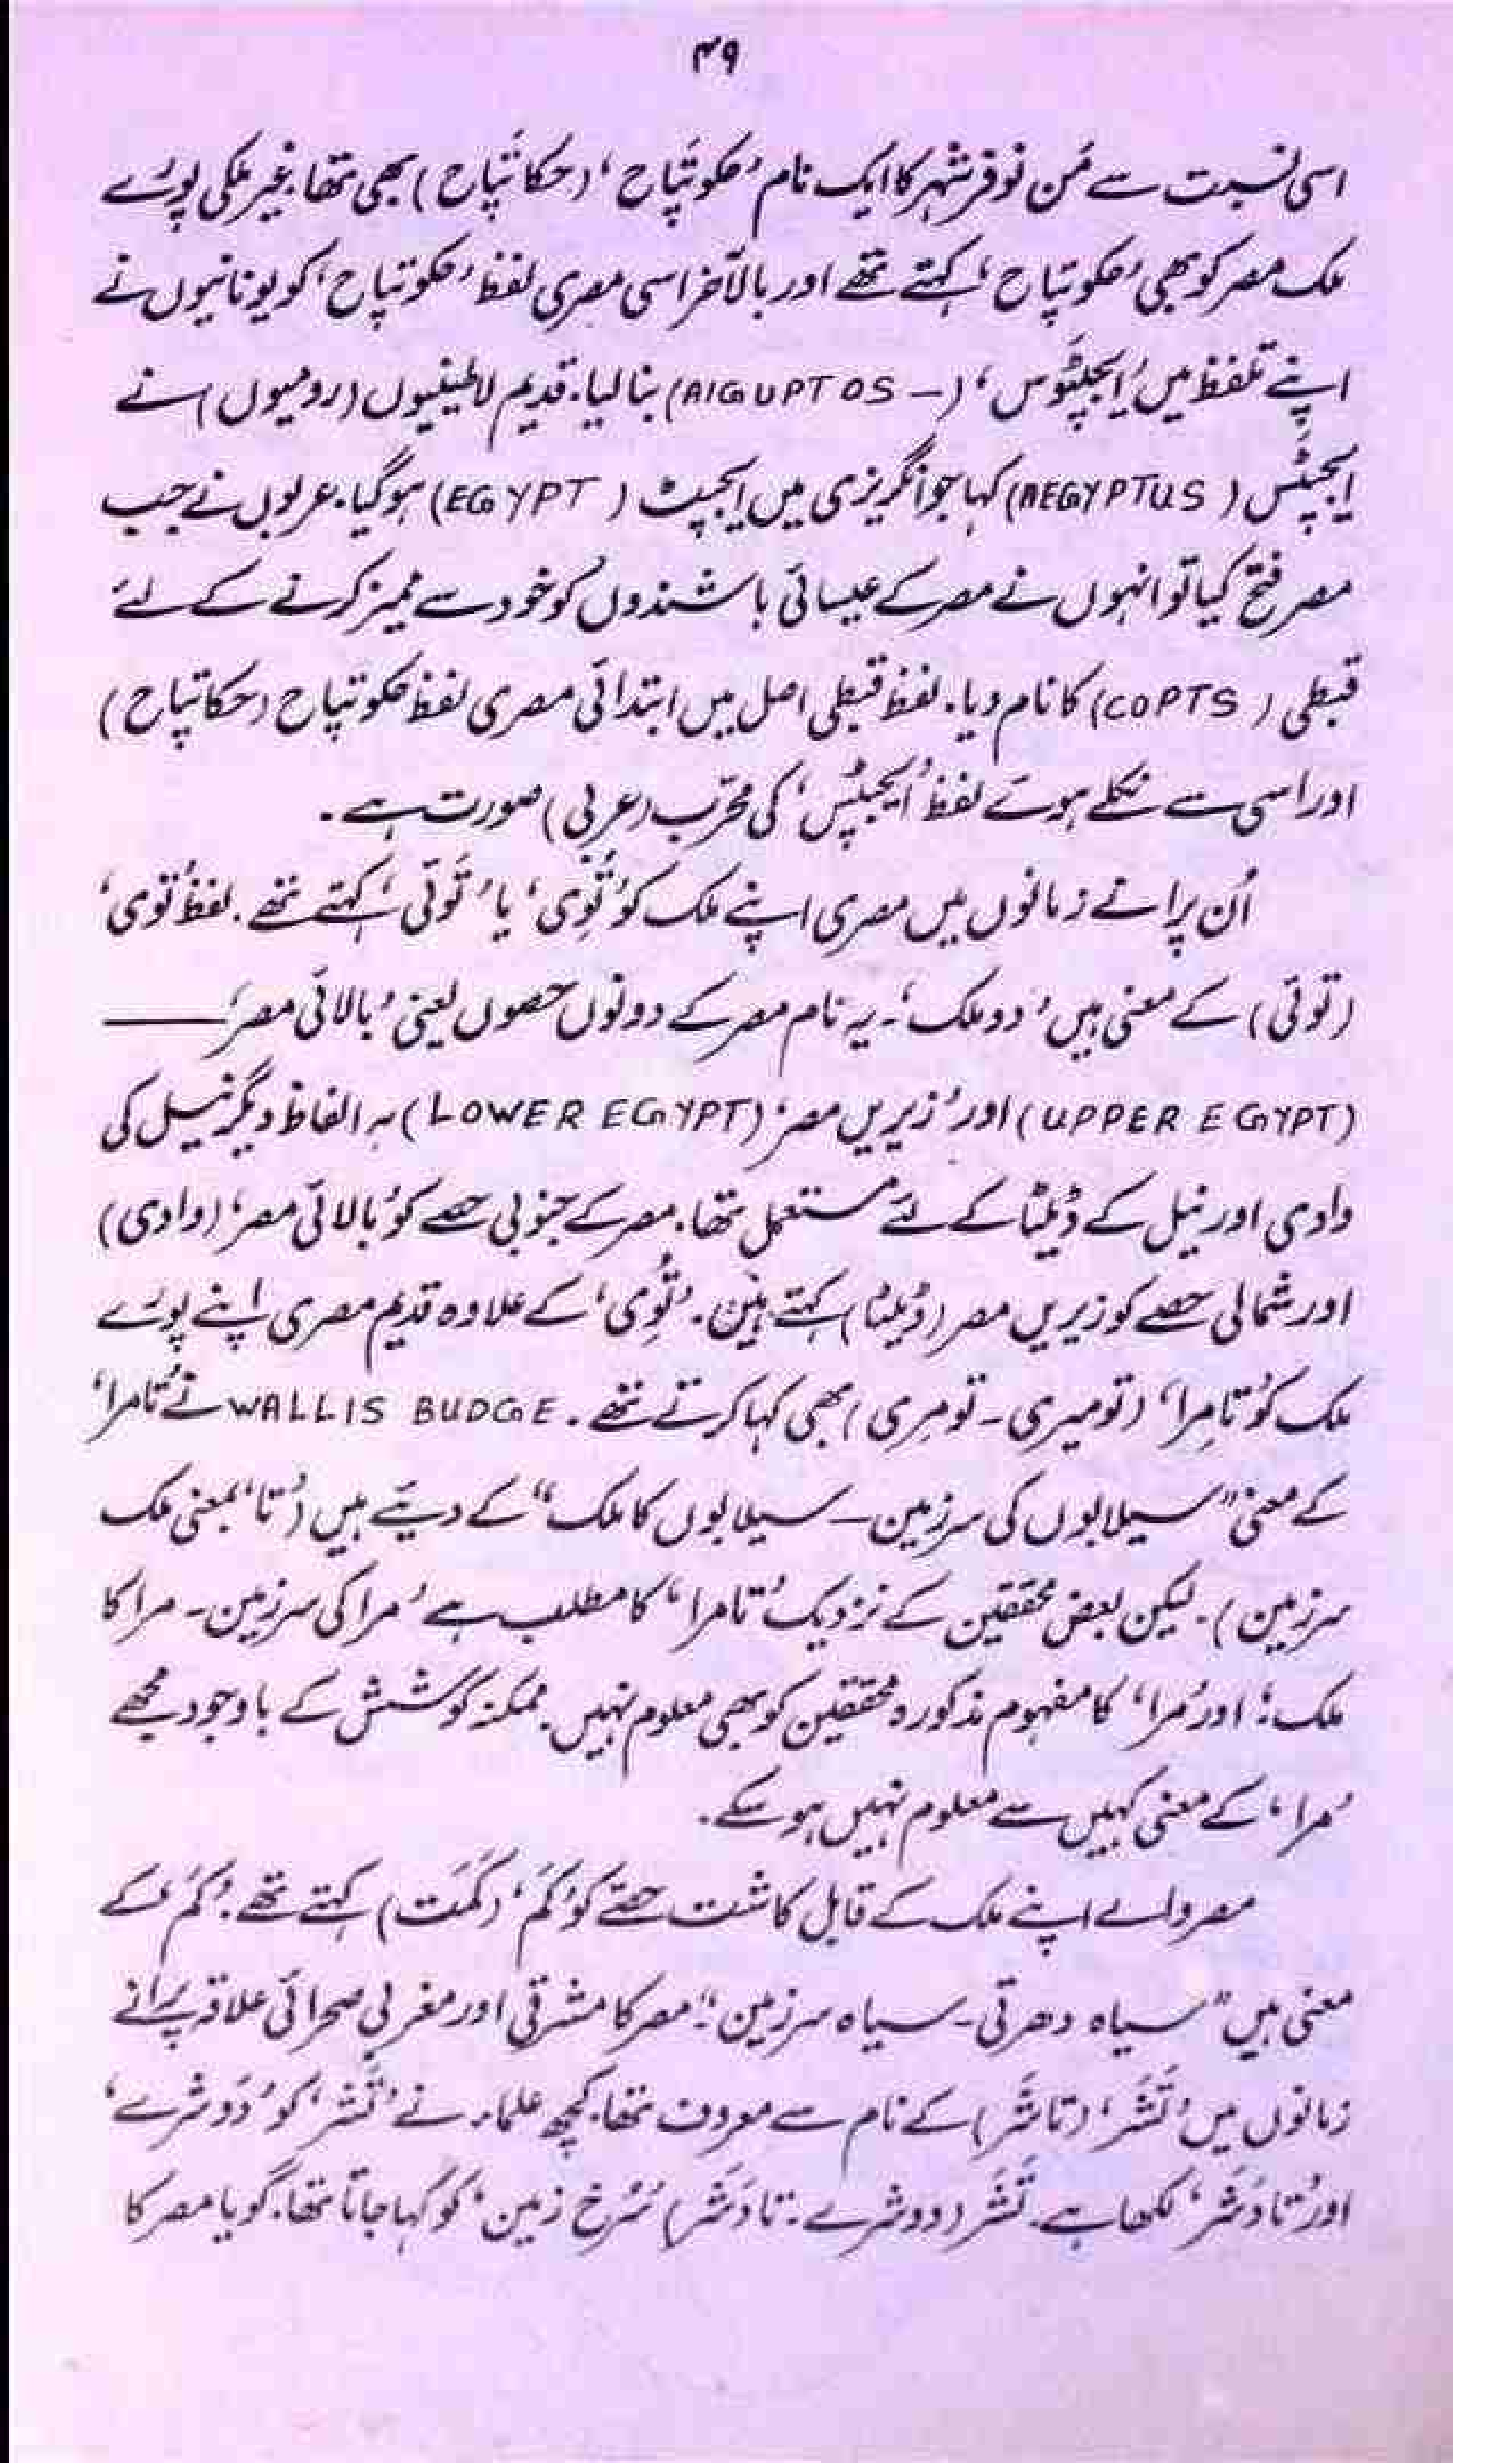 ۴۹
اسی نسبت سے مَن نوفر شہر کا ایک نام ’حکوتپاح‘ (حکاتپاح) بھی تھا۔ غیر ملکی پورے
ملک مصر کو بھی ’حکوتپاح‘ کہتے تھے اور بالآخر اسی مصری لفظ ’حکوتپاح‘ کو یونانیوں نے
اپنے تلفظ میں ’ایجپٹوس‘ (AIGUPTOS –) بنا لیا۔ قدیم لاطینیوں (رومیوں) نے
ایجپٹس (AEGYPTUS) کہا جو انگریزی میں ایجپٹ (EGYPT) ہوگیا۔ عربوں نے جب
مصر فتح کیا تو انہوں نے مصر کے عیسائی باشندوں کو خود سے ممیز کرنے کے لئے
قبطی (COPTS) کا نام دیا۔ لفظ قبطی اصل میں ابتدائی مصری لفظ حکوتپاح (حکاتپاح)
اور اسی سے نکلے ہوئے لفظ ’ایجپٹس‘ کی معرّب (عربی) صورت ہے۔
اُن پرانے زمانوں میں مصری اپنے ملک کو ’تُوِی‘ یا ’تَوئی‘ کہتے تھے۔ لفظ ’توی‘
(توئی) کے معنی ہیں ’دو ملک‘۔ یہ نام مصر کے دونوں حصوں یعنی ’بالائی مصر‘ ——
(UPPER EGYPT) اور ’زیریں مصر‘ (LOWER EGYPT) بہ الفاظ دیگر نیل کی
وادی اور نیل کے ڈیلٹا کے لئے مستعمل تھا۔ مصر کے جنوبی حصے کو ’بالائی مصر‘ (وادی)
اور شمالی حصے کو زیریں مصر (ڈیلٹا) کہتے ہیں۔ ’تُوِی‘ کے علاوہ قدیم مصری اپنے پورے
ملک کو ’تامِرا‘ (تومیری ـ تومِری) بھی کہا کرتے تھے۔ WALLIS BUDGE نے ’تامرا‘
کے معنی ”سیلابوں کی سرزمین ـ سیلابوں کا ملک“ کے دیئے ہیں (’تا‘ بمعنی ملک
سرزمین)۔ لیکن بعض محققین کے نزدیک ’تامرا‘ کا مطلب ہے ’مرا کی سرزمین ـ مرا کا
ملک‘۔ اور ’مرا‘ کا مفہوم مذکورہ محققین کو بھی معلوم نہیں۔ ممکنہ کوشش کے باوجود مجھے
’مرا‘ کے معنی کہیں سے معلوم نہیں ہو سکے۔
مصر والے اپنے ملک کے قابل کاشت حصّے کو ’کَم‘ (کَمَت) کہتے تھے۔ ’کَم‘ کے
معنی ہیں ”سیاہ دھرتی ـ سیاہ سرزمین“۔ مصر کا مشرقی اور مغربی صحرائی علاقہ پرانے
زمانوں میں ’تَشَر‘ (تاشَر) کے نام سے معروف تھا۔ کچھ علماء نے ’تَشر‘ کو ’دَوشرے‘
اور ’تادَشر‘ لکھا ہے۔ تَشَر (دوشرے ـ تادَشَر) ’سُرخ زمین‘ کو کہا جاتا تھا۔ گویا مصر کا